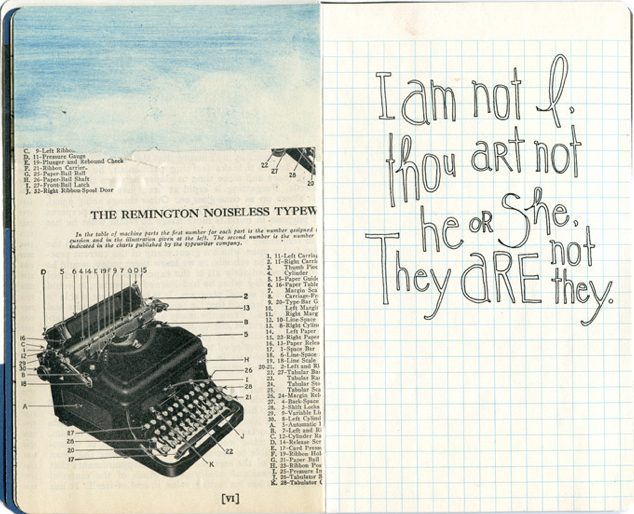 C. 9-Left Ribbon
D. 11-Pressure Gauge
E. 19-Plunger and Rebound Check
F. 21-Ribbon Carrier.
G. 25-Paper-Bail Roll
H. 26-Paper-Bail Shaft
I. 27-Front-Bail Latch
J. 32-Right Ribbon-Spool Door
22 27 20
THE REMINGTON NOISELESS TYPEW
In the table of machine parts the first number for each part is the number assigned
cussion and in the illustration given at the left. The second number is the number
indicated in the charts published by the typewriter company.
D 5 6 4 14 E 19 9 7 G 15
2
13
8
5
H
26
I
28
21
J
22
K
16
C
1
12
29
30
B
18
A
27
28
20
17
1. 11-Left Carria
2. 11-Right Carria
3. Thumb Piec
4. Cylinder
5. 15-Paper Guide
6. 16-Paper Table
7. Margin Sca
8. Carriage-Fr
9. 20-Type-Bar G
10. Left Margin
11. Right Marg
12. 10-Line-Space
13. 8-Right Cylin
14. Left Paper
15. 22-Right Paper
16. 13-Paper Relea
17. 1-Space Bar
18. 6-Line-Space
19. 18-Line Scale
20-21. 2-Left and Ri
22. 27-Tabular Ba
23. Tabular Ra
24. Tabular Sto
25. Tabular Sca
26. 24-Margin Rele
27. 4-Back-Space
28. 3-Shift Locks
29. 9-Variable Li
30. 8-Left Cylind
A. 5-Automatic
B. 7-Left and Ri
C. 12-Cylinder Re
D. 14-Release Scr
E. 17-Card Press
F. 19-Ribbon Hol
G. 21-Paper Bail
H. 23-Ribbon Pos
I. 25-Pressure In
J. 26-Tabulator S
K. 28-Tabulator C
[VI]
I am not I,
thou art not
he or She,
They ARE not they.